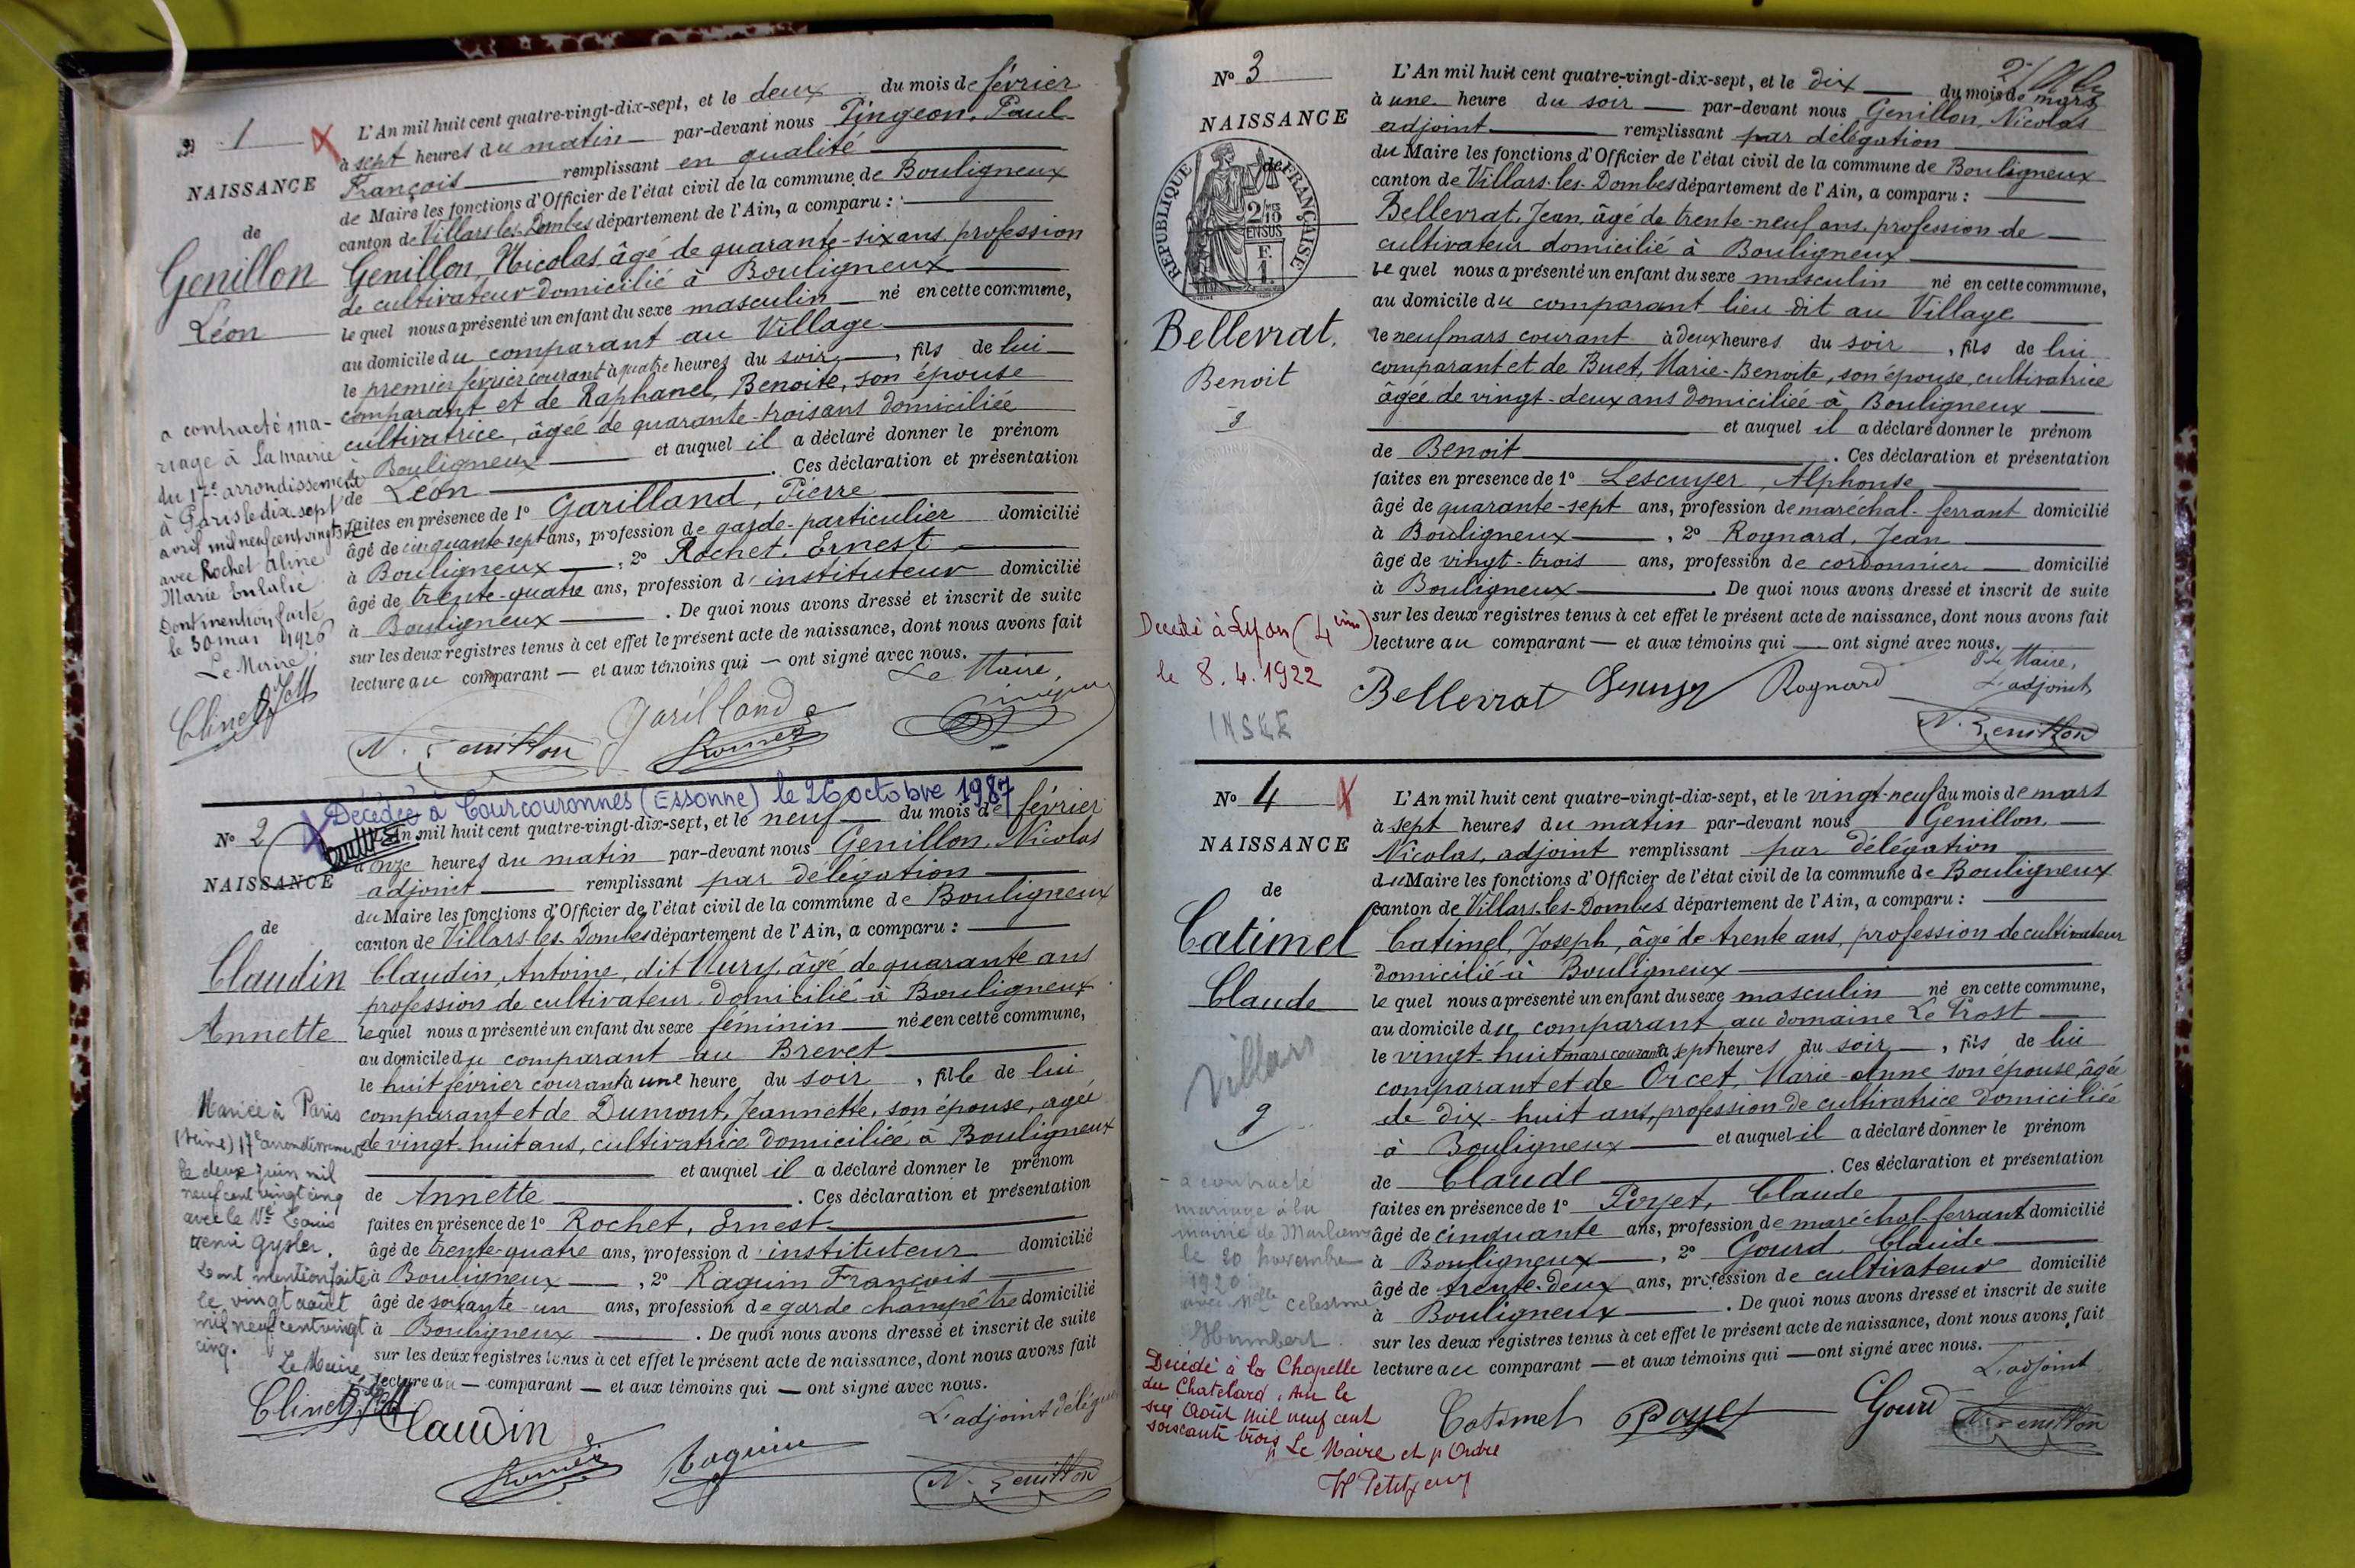 N 1
NAISSANCE
de
Genillon
Léon
L'An mil huit cent quatre-vingt-dix-sept, et le deux du mois de février
à sept heures du matin par-devant nous Pingeon, Paul
François remplissant en qualité
de Maire les fonctions d'Officier de l'état civil de la commune de Bouligneux
canton de Villars-les-Dombes département de l'Ain, a comparu :
Genillon, Nicolas, âgé de quarante-six ans, profession
de cultivateur domicilié à Bouligneux
lequel nous a présenté un enfant du sexe masculin né en cette commune,
au domicile du comparant au Village
le premier février courant à quatre heures du soir, fils de lui
comparant et de Raphanel, Benoite, son épouse
cultivatrice, âgée de quarante-trois ans domiciliée
à Bouligneux et auquel il a déclaré donner le prénom
de Léon. Ces déclaration et présentation
faites en présence de 1° Garilland, Pierre
âgé de cinquante sept ans, profession de garde-particulier domicilié
à Bouligneux, 2° Rochet, Ernest
âgé de trente-quatre ans, profession d'instituteur domicilié
à Bouligneux. De quoi nous avons dressé et inscrit de suite
sur les deux registres tenus à cet effet le présent acte de naissance, dont nous avons fait
lecture au comparant — et aux témoins qui — ont signé avec nous.
Le Maire,
a contracté ma-
riage à la mairie
du 17e arrondissement
à Paris le dix sept
avril mil neuf cent vingt six
avec Rochet Aline
Marie Eulalie
Dont mention faite
le 30 mai 1926
Le Maire,
N. Genillon
Garilland
Décédée à Courcouronnes (Essonne) le 26 octobre 1987
N° 2
NAISSANCE
de
Claudin
Annette
L'An mil huit cent quatre-vingt-dix-sept, et le neuf du mois de février
à onze heures du matin par-devant nous Genillon, Nicolas
adjoint remplissant par délégation
du Maire les fonctions d'Officier de l'état civil de la commune de Bouligneux
canton de Villars-les-Dombes département de l'Ain, a comparu :
Claudin, Antoine, dit Mury, âgé de quarante ans
profession de cultivateur domicilié à Bouligneux
lequel nous a présenté un enfant du sexe féminin née en cette commune,
au domicile du comparant au Brevet
le huit février courant à une heure du soir, fille de lui
comparant et de Dumont, Jeannette, son épouse, agée
de vingt-huit ans, cultivatrice domiciliée à Bouligneux
et auquel il a déclaré donner le prénom
de Annette. Ces déclaration et présentation
faites en présence de 1° Rochet, Ernest
âgé de trente-quatre ans, profession d'instituteur domicilié
à Bouligneux, 2° Raquin François
âgé de soixante-un ans, profession de garde champêtre domicilié
à Bouligneux. De quoi nous avons dressé et inscrit de suite
sur les deux registres tenus à cet effet le présent acte de naissance, dont nous avons fait
lecture au — comparant — et aux témoins qui — ont signé avec nous.
L'adjoint délégué
Mariée à Paris
(Seine) 17e arrondissement
le deux juin mil
neuf cent vingt cinq
avec le Vf Louis
Henri Gysler.
Dont mention faite
le vingt août
mil neuf cent vingt
cinq.
Le Maire,
Claudin
Raquin
N. Genillon
N° 3
NAISSANCE
de
REPUBLIQUE FRANÇAISE
2/10mes
EN SUS
F.
1
Bellevrat,
Benoit
L'An mil huit cent quatre-vingt-dix-sept, et le dix du mois de mars
à une heure du soir par-devant nous Genillon, Nicolas
adjoint remplissant par délégation
du Maire les fonctions d'Officier de l'état civil de la commune de Bouligneux
canton de Villars-les-Dombes département de l'Ain, a comparu :
Bellevrat, Jean, âgé de trente-neuf ans, profession de
cultivateur domicilié à Bouligneux
lequel nous a présenté un enfant du sexe masculin né en cette commune,
au domicile du comparant lieu dit au Village
le neuf mars courant à deux heures du soir, fils de lui
comparant et de Buet, Marie-Benoite, son épouse, cultivatrice
âgée de vingt-deux ans domiciliée à Bouligneux
et auquel il a déclaré donner le prénom
de Benoit. Ces déclaration et présentation
faites en présence de 1° Lescuyer, Alphonse,
âgé de quarante-sept ans, profession de maréchal-ferrant domicilié
à Bouligneux, 2° Rognard, Jean
âgé de vingt-trois ans, profession de cordonnier domicilié
à Bouligneux. De quoi nous avons dressé et inscrit de suite
sur les deux registres tenus à cet effet le présent acte de naissance, dont nous avons fait
lecture au comparant — et aux témoins qui — ont signé avec nous.
Pr le Maire,
L'adjoint
Décédé à Lyon (4ème)
le 8.4.1922
INSEE
Bellevrat Lescuyer Rognard
N. Genillon
N° 4
NAISSANCE
de
Catimel
Claude
Villars
L'An mil huit cent quatre-vingt-dix-sept, et le vingt-neuf du mois de mars
à sept heures du matin par-devant nous Genillon,
Nicolas, adjoint remplissant par délégation
du Maire les fonctions d'Officier de l'état civil de la commune de Bouligneux
canton de Villars-les-Dombes département de l'Ain, a comparu :
Catimel, Joseph, âgé de trente ans, profession de cultivateur
domicilié à Bouligneux
lequel nous a présenté un enfant du sexe masculin né en cette commune,
au domicile du comparant au domaine Le Prost
le vingt-huit mars courant à sept heures du soir, fils de lui
comparant et de Orcet, Marie-Anne son épouse, âgée
de dix-huit ans, profession de cultivatrice domiciliée
à Bouligneux et auquel il a déclaré donner le prénom
de Claude. Ces déclaration et présentation
faites en présence de 1° Poyet, Claude
âgé de cinquante ans, profession de maréchal-ferrant domicilié
à Bouligneux, 2° Gourd, Claude
âgé de trente-deux ans, profession de cultivateur domicilié
à Bouligneux. De quoi nous avons dressé et inscrit de suite
sur les deux registres tenus à cet effet le présent acte de naissance, dont nous avons fait
lecture au comparant — et aux témoins qui — ont signé avec nous.
L'adjoint
a contracté
mariage à la
mairie de Marlieux
le 20 novembre
1920
avec Melle Célestine
Humbert
Décédé à la Chapelle
du Chatelard, Ain le
six Août mil neuf cent
soixante trois
Le Maire et p Ordre
Catimel Poyet Gourd
N. Genillon